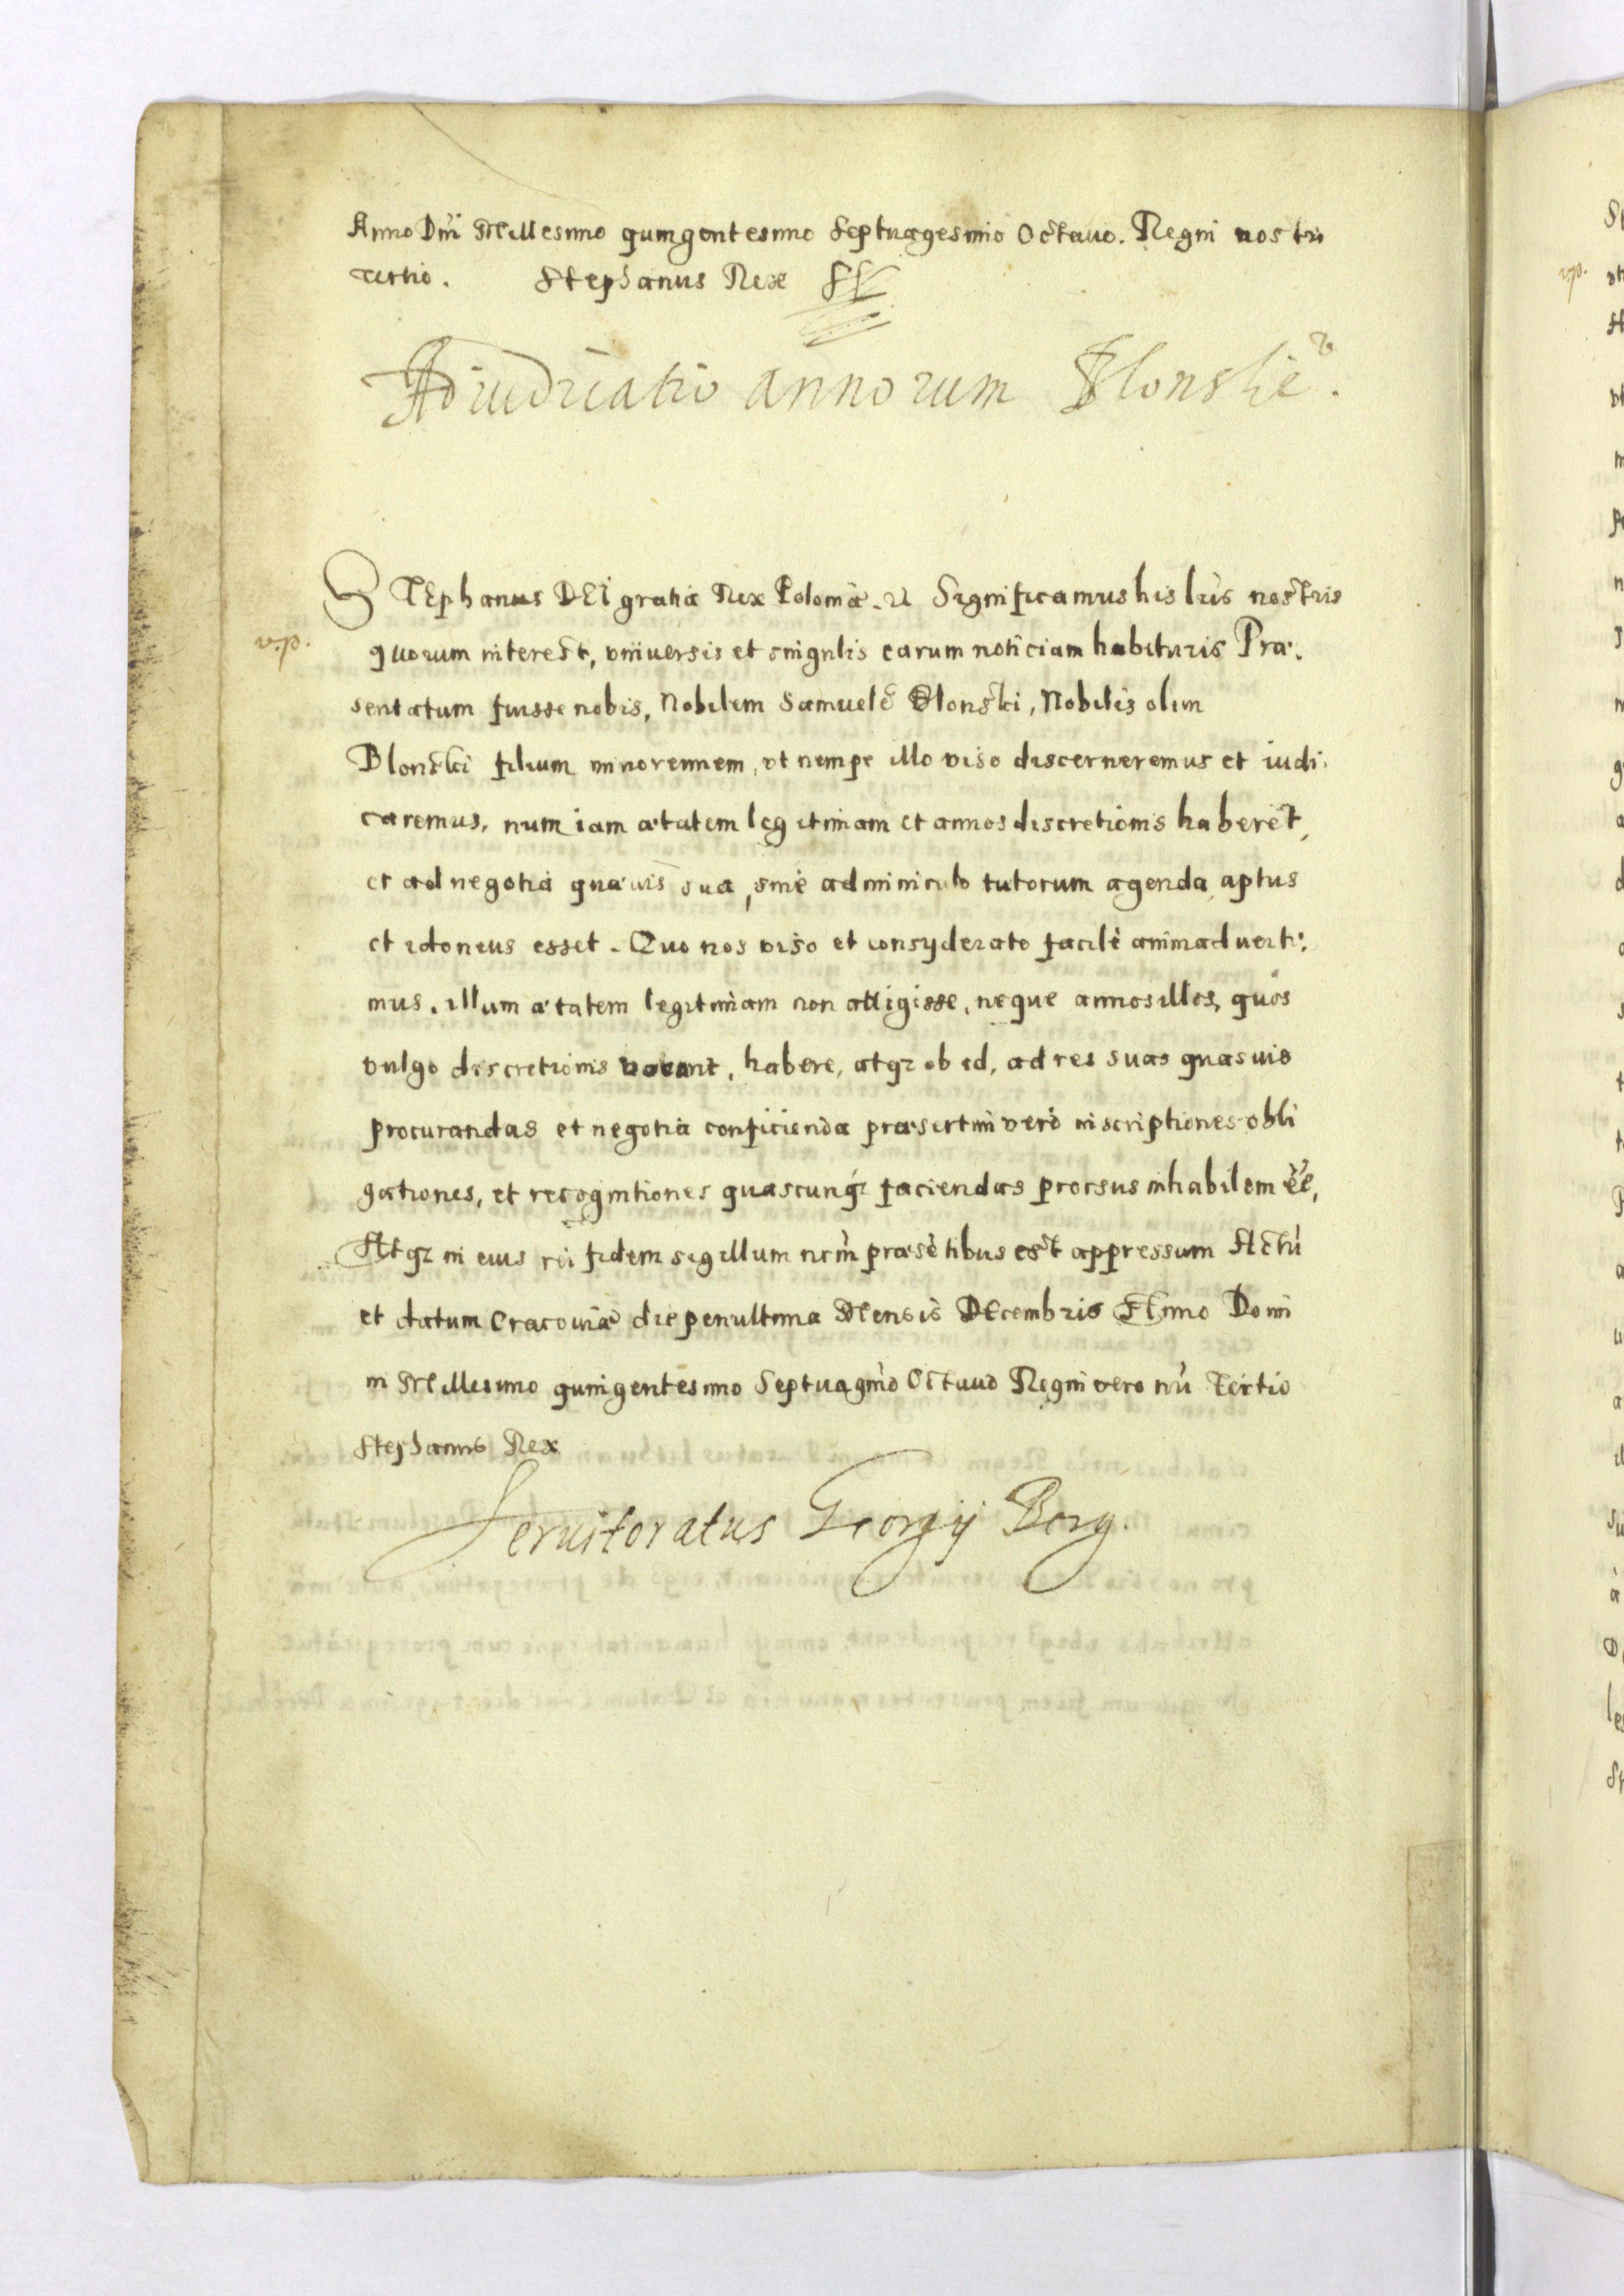 Anno Dni Millesimo quingentesimo Septuagesimo Octauo. Regni nostri
tertio. Stephanus Rex
Adiudicatio annorum Blonskie.
STEphanus DEI gratia Rex Poloniæ. Significamus his lris nostris
v.p.
quorum interest, vniuersis et singulis earum noticiam habituris Præ:
sentatum fuisse nobis, Nobilem Samuelē Blonski, Nobilis olim
Blonski filium minorennem, vt nempe illo viso discerneremus et iudi:
caremus, num iam ætatem legitimam et annos discretionis haberet,
et ad negotia quæuis sua, sine adminiculo tutorum agenda aptus
et idoneus esset. Quo nos viso et consyderato facilè animaduerti:
mus, illum ætatem legitimam non attigisse, neque annos illos, quos
vulgo discretionis vocant, habere, atqz ob id, ad res suas quasuis
procurandas et negotia conficienda præsertim verò inscriptiones obli
gationes, et recognitiones quascunqz faciendas prorsus inhabilem eē,
Atqz in eius rei fidem sigillum nrm præsētibus est appressum Actū
et datum Cracouiæ die penultima Mensis DEcembris Anno Domi
ni Millesimo quingentesimo Septuagmo Octauo Regni vero nri tertio
Stephanus Rex
Seruitoratus Georgij Borg.